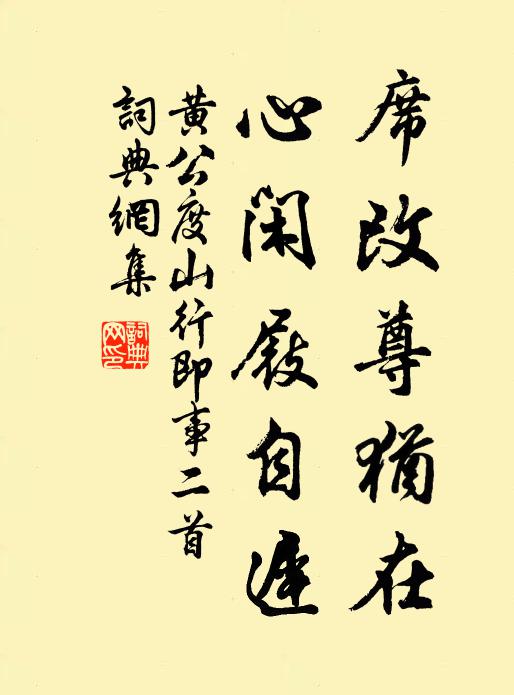 席改尊猶在
心閑屐自遲
黄公度山行即事二首
詞典網集
詞典網印